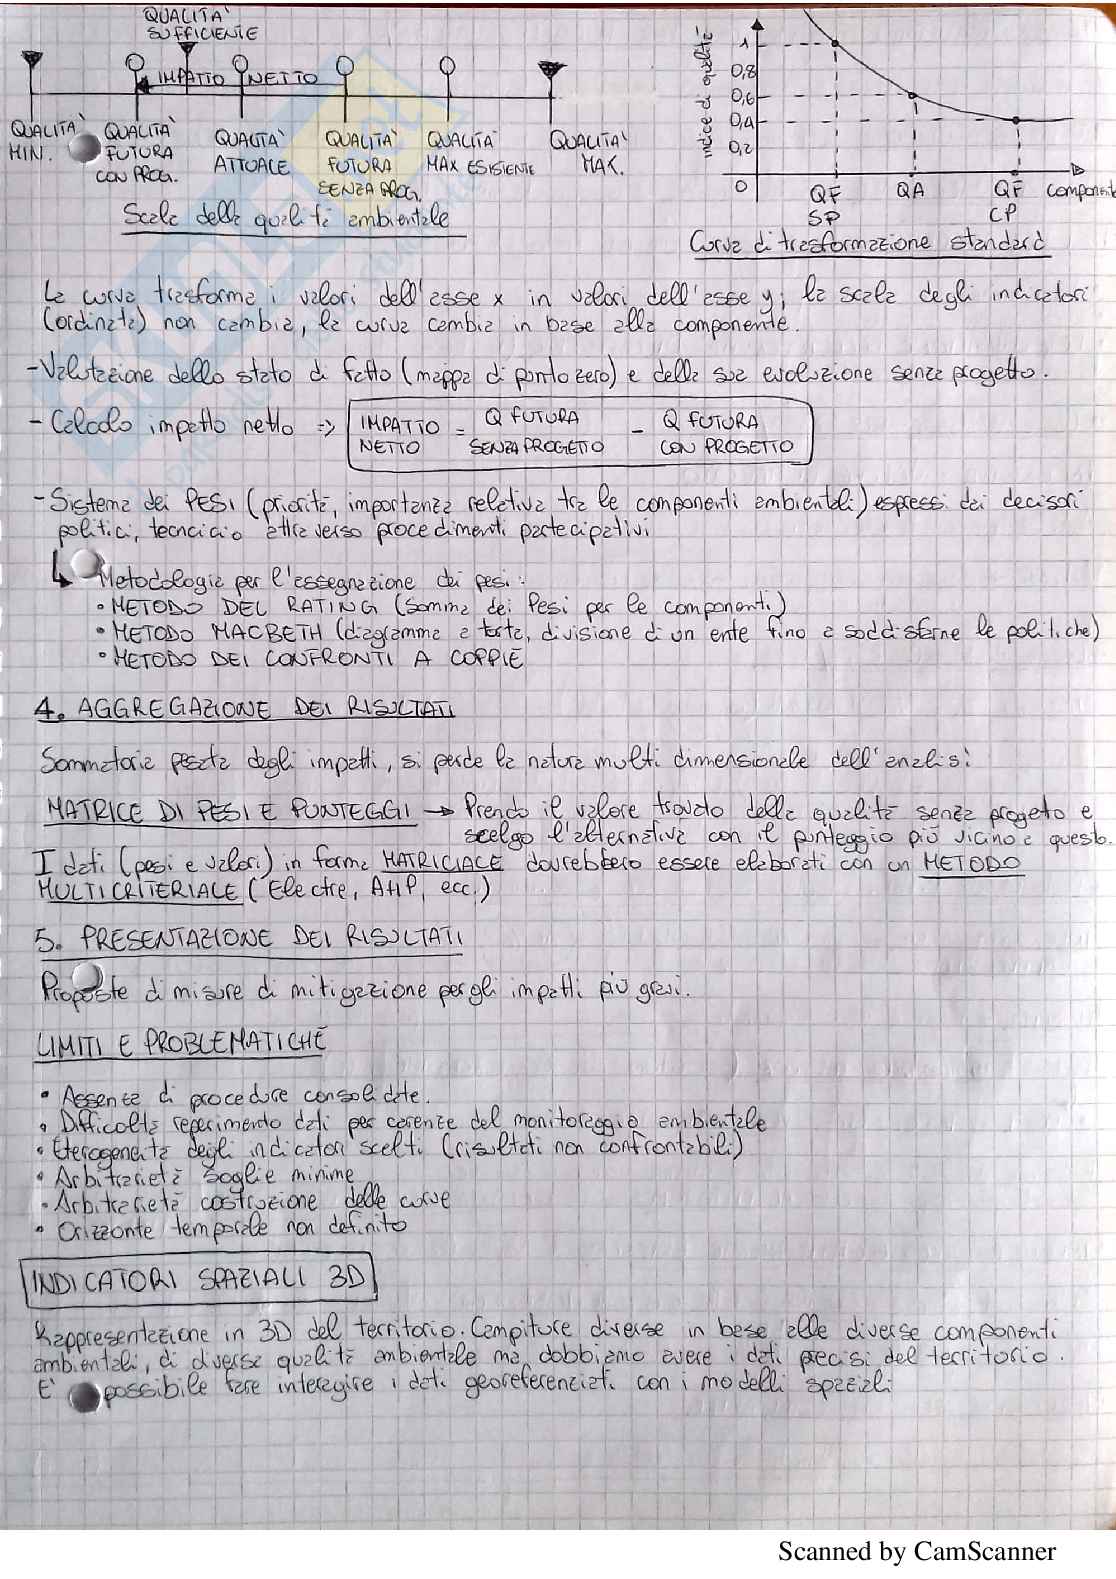 QUALITA'
SUFFICIENTE
IMPATTO NETTO
QUALITA'
MIN.
QUALITA'
FUTURA
CON PROG.
QUALITA'
ATTUALE
QUALITA'
FUTURA
SENZA PROG.
QUALITA'
MAX ESISTENTE
QUALITA'
MAX.
Scala della qualità ambientale
indice di qualità
1
0,8
0,6
0,4
0,2
0
QF
SP
QA
QF
CP
componente
Curva di trasformazione standard
La curva trasforma i valori dell'asse x in valori dell'asse y; la scala degli indicatori
(ordinata) non cambia, la curva cambia in base alla componente.
- Valutazione dello stato di fatto (mappa di punto zero) e della sua evoluzione senza progetto.
- Calcolo impatto netto => IMPATTO NETTO = Q FUTURA SENZA PROGETTO - Q FUTURA CON PROGETTO
- Sistema dei PESI (priorità, importanza relativa tra le componenti ambientali) espressi dai decisori
politici, tecncici o attraverso procedimenti partecipativi
↳ Metodologie per l'assegnazione dei pesi:
• METODO DEL RATING (Somma dei Pesi per le componenti)
• METODO MACBETH (diagramma a torta, divisione di un ente fino a soddisfarne le politiche)
• METODO DEI CONFRONTI A COPPIE
4. AGGREGAZIONE DEI RISULTATI
Sommatoria pesata degli impatti, si perde la natura multi dimensionale dell'analisi
MATRICE DI PESI E PUNTEGGI → Prendo il valore trovato della qualità senza progetto e
scelgo l'alternativa con il punteggio più vicino a questo.
I dati (pesi e valori) in forma MATRICIALE dovrebbero essere elaborati con un METODO
MULTICRITERIALE (Electre, AHP, ecc.)
5. PRESENTAZIONE DEI RISULTATI
Proposte di misure di mitigazione per gli impatti più gravi.
LIMITI E PROBLEMATICHE
• Assenza di procedure consolidate.
• Difficoltà reperimento dati per carenze del monitoraggio ambientale
• Eterogeneità degli indicatori scelti (risultati non confrontabili)
• Arbitrarietà soglie minime
• Arbitrarietà costruzione delle curve
• Orizzonte temporale non definito
INDICATORI SPAZIALI 3D
Rappresentazione in 3D del territorio. Campiture diverse in base alle diverse componenti
ambientali, di diverse qualità ambientale ma dobbiamo avere i dati precisi del territorio.
E' possibile fare interagire i dati georeferenziati con i modelli spaziali
Scanned by CamScanner